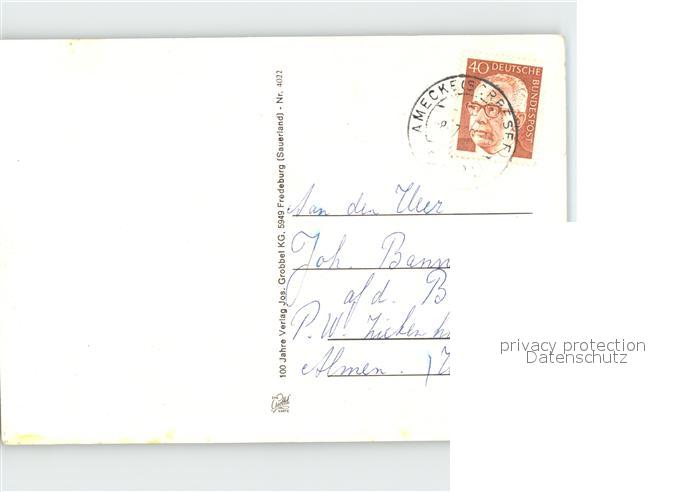 40 DEUTSCHE BUNDESPOST
AMECKE
100 Jahre Verlag Jos. Grobbel KG, 5949 Fredeburg (Sauerland) - Nr. 4022
Aan den Heer
Joh. Bann
afd. B
P.W.
Almen.
privacy protection
Datenschutz